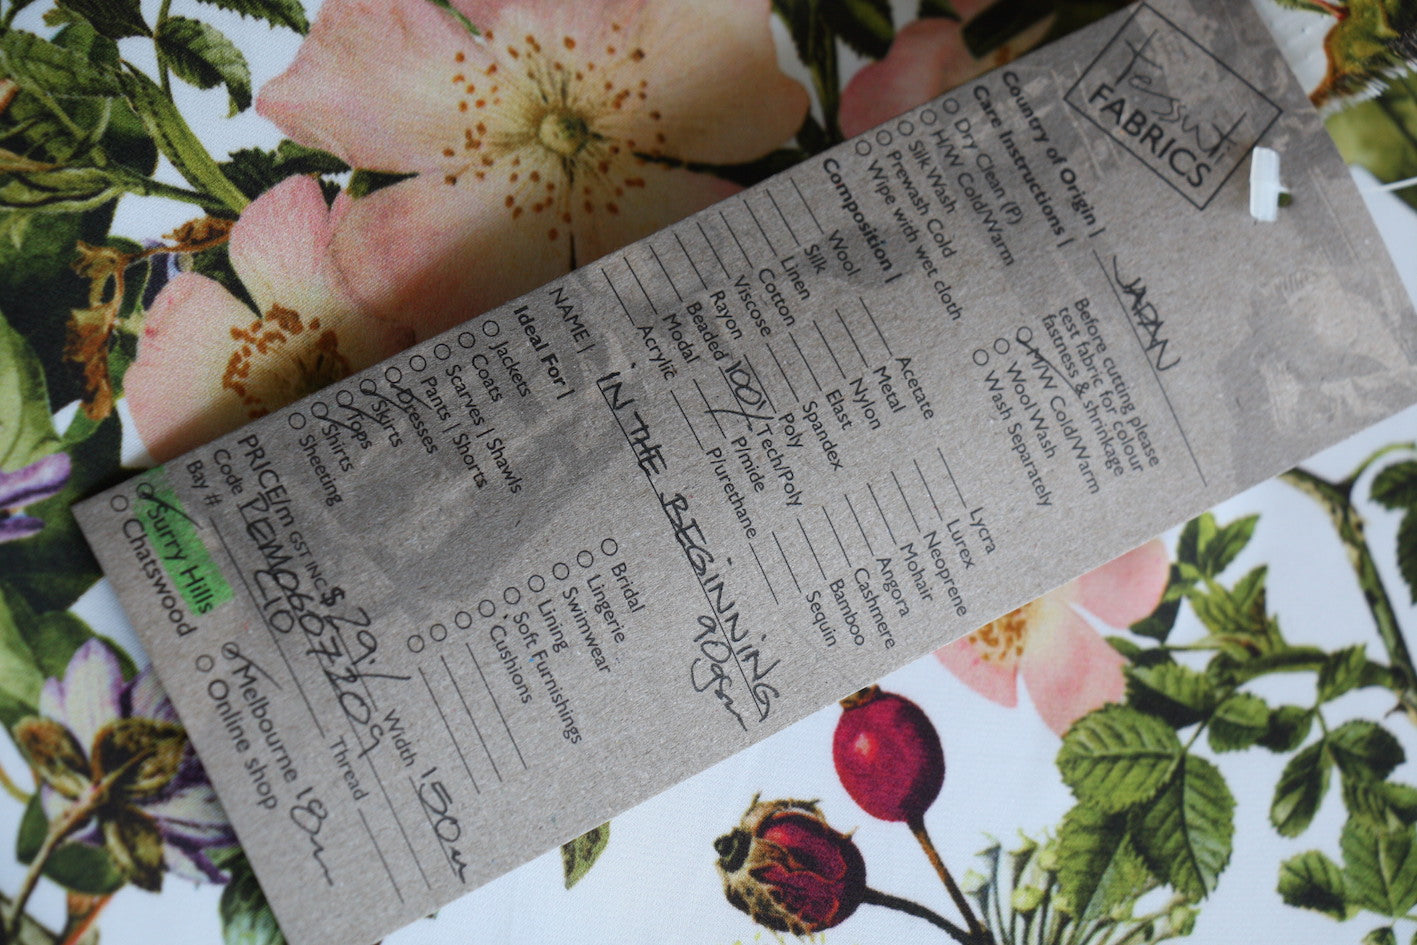 Tessuti
FABRICS
Country of Origin | JAPAN
Care Instructions |
Dry Clean (P)
H/W Cold/Warm
Silk Wash
Prewash Cold
Wipe with wet cloth
Before cutting please
test fabric for colour
fastness & shrinkage
M/W Cold/Warm
Wool Wash
Wash Separately
Composition |
Wool
Silk
Linen
Cotton
Viscose
Rayon
Beaded
Modal
Acrylic
Acetate
Metal
Nylon
Elast
Spandex
Poly
100% Tech/Poly
P/mide
P/urethane
Lycra
Lurex
Neoprene
Mohair
Angora
Cashmere
Bamboo
Sequin
NAME | IN THE BEGINNING
90gsm
Ideal For |
Jackets
Coats
Scarves | Shawls
Pants | Shorts
Dresses
Skirts
Tops
Shirts
Sheeting
Bridal
Lingerie
Swimwear
Lining
Soft Furnishings
Cushions
PRICE/m GST INC $ 29./ Width 150cm
Code PEM06607209 Thread
Bay # C10
Surry Hills
Chatswood
Melbourne 18m
Online shop